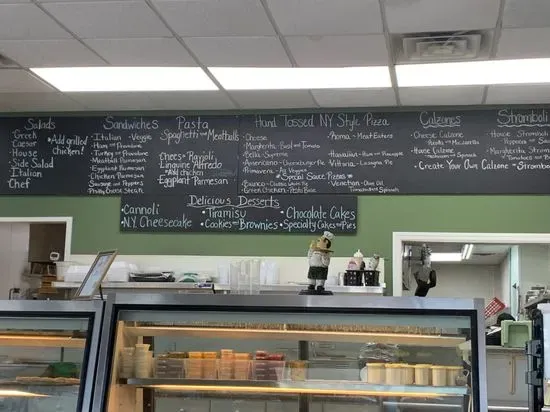 Salads
Greek
Caesar
House
Side Salad
Italian
Chef
*Add grilled
chicken!
Sandwiches
• Italian • Veggie
• Ham and Provolone
• Turkey and Provolone
• Meatball Parmesan
• Eggplant Parmesan
• Chicken Parmesan
• Sausage and Peppers
• Philly Cheese Steak
Pasta
Spaghetti and Meatballs
Cheese Ravioli
Linguine Alfredo
*Add chicken
Eggplant Parmesan
Hand Tossed NY Style Pizza
• Cheese
• Margherita - Basil and Tomato
• Bella - Supreme
• Americano - Cheeseburger Pie
• Primavera - All Veggies
* Special Sauce Pizzas *
• Bianco - Classic White Pie
• Green Chicken - Pesto Base
• Roma - Meat Eaters
• Hawaiian - Ham and Pineapple
• Vittoria - Lasagna Pie
• Venetian - Olive Oil
Tomato and Spinach
Calzones
• Cheese Calzone
Ricotta and Mozzarella
• House Calzone
• Create Your Own Calzone or Stromboli
Stromboli
• House Stromboli
• Margherita Stromboli
Delicious Desserts
• Cannoli
• N.Y. Cheesecake
• Tiramisu
• Cookies and Brownies
• Chocolate Cakes
• Specialty Cakes and Pies